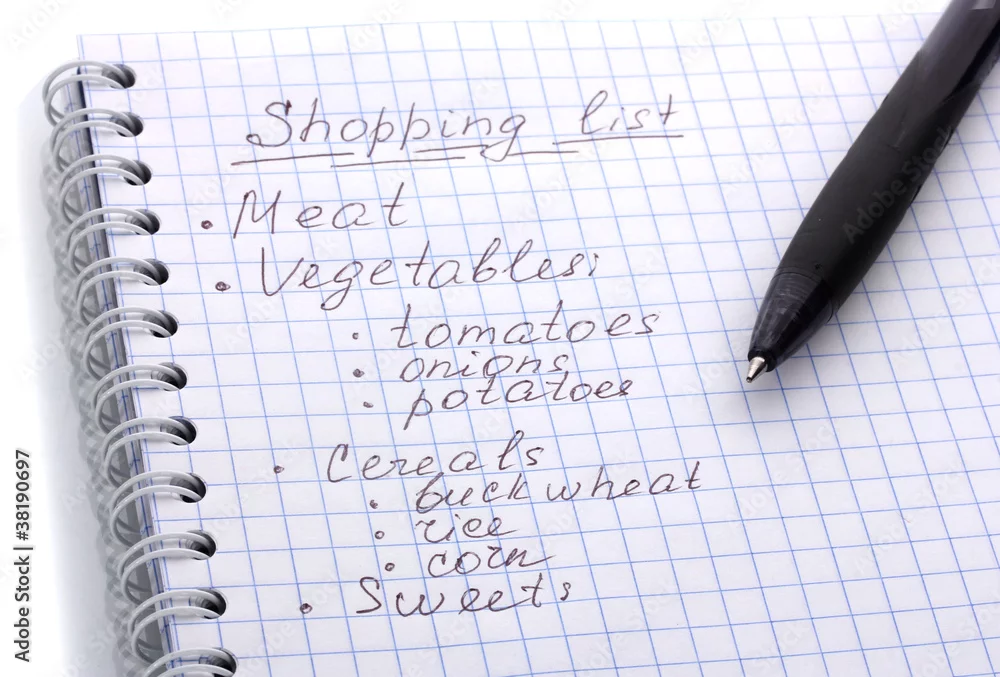 Shopping list
• Meat
• Vegetables:
• tomatoes
• onions
• potatoes
• Cereals
• buckwheat
• rice
• corn
• Sweets
Adobe Stock | #38190697